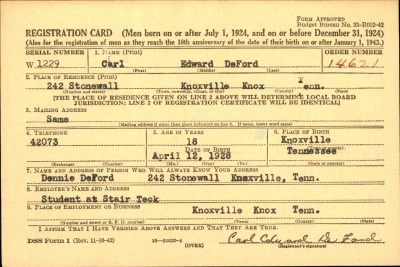 FORM APPROVED
Budget Bureau No. 33-R012-42
REGISTRATION CARD (Men born on or after July 1, 1924, and on or before December 31, 1924)
(Also for the registration of men as they reach the 18th anniversary of the date of their birth on or after January 1, 1943.)
SERIAL NUMBER 1. NAME (Print) ORDER NUMBER
W 1229 Carl Edward DeFord 14621
(First) (Middle) (Last)
2. PLACE OF RESIDENCE (Print)
242 Stonewall Knoxville Knox Tenn.
(Number and street) (Town, township, village, or city) (County) (State)
[THE PLACE OF RESIDENCE GIVEN ON LINE 2 ABOVE WILL DETERMINE LOCAL BOARD
JURISDICTION; LINE 2 OF REGISTRATION CERTIFICATE WILL BE IDENTICAL]
3. MAILING ADDRESS
Same
[Mailing address if other than place indicated on line 2. If same, insert word same]
4. TELEPHONE 5. AGE IN YEARS 6. PLACE OF BIRTH
42073 18 Knoxville
DATE OF BIRTH (Town or county)
April 12, 1928 Tennessee
(Exchange) (Number) (Mo.) (Day) (Yr.) (State or country)
7. NAME AND ADDRESS OF PERSON WHO WILL ALWAYS KNOW YOUR ADDRESS
Dennie DeFord 242 Stonewall Knoxville, Tenn.
8. EMPLOYER'S NAME AND ADDRESS
Student at Stair Teck
9. PLACE OF EMPLOYMENT OR BUSINESS
Knoxville Knox Tenn.
(Number and street or R. F. D. number) (Town) (County) (State)
I AFFIRM THAT I HAVE VERIFIED ABOVE ANSWERS AND THAT THEY ARE TRUE.
DSS Form 1 (Rev. 11-16-42) 16-21630-4 (OVER) Carl Edward DeFord
(Registrant's signature)